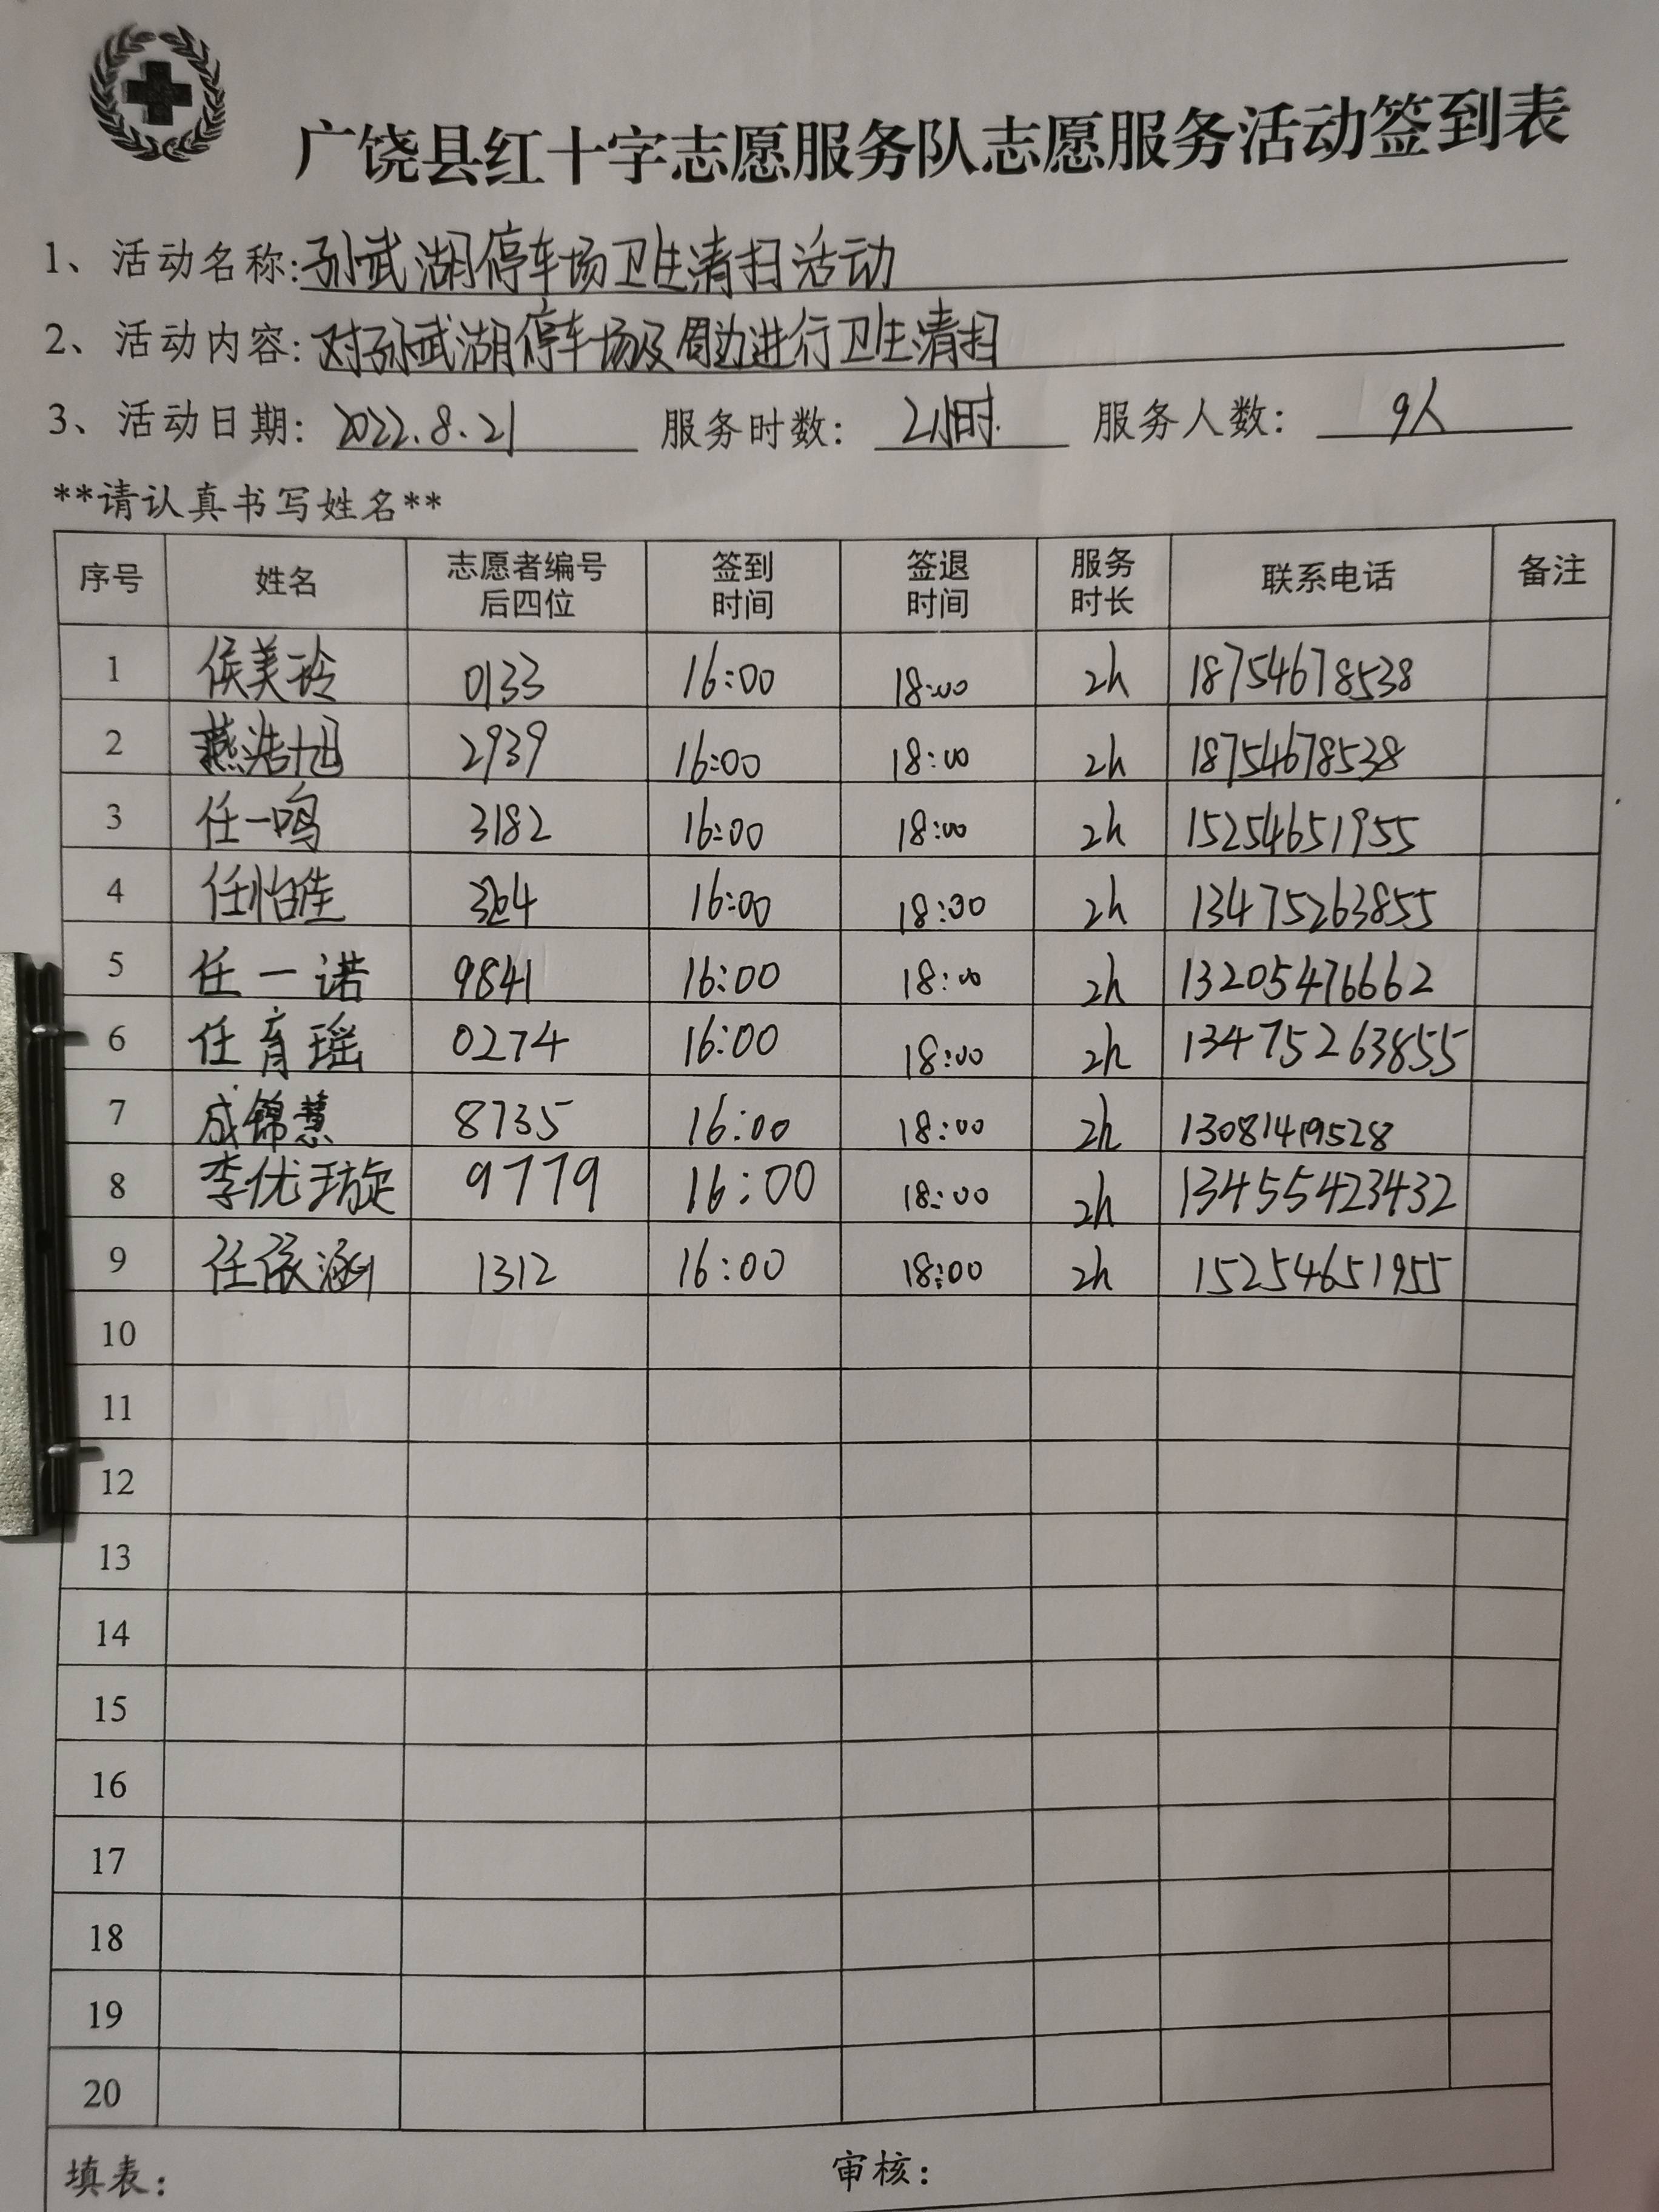 广饶县红十字志愿服务队志愿服务活动签到表
1、活动名称:孙武湖停车场卫生清扫活动
2、活动内容:对孙武湖停车场及周边进行卫生清扫
3、活动日期: 2022.8.21 服务时数: 2小时. 服务人数: 9人
**请认真书写姓名**
序号 姓名 志愿者编号后四位 签到时间 签退时间 服务时长 联系电话 备注
1 侯美玲 0133 16:00 18:00 2h 18754678538
2 燕浩旭 2939 16:00 18:00 2h 18754678538
3 任一鸣 3182 16:00 18:00 2h 15254651955
4 任怡佳 16:00 18:00 2h 13475263855
5 任一诺 9841 16:00 18:00 2h 13205476662
6 任育瑶 0274 16:00 18:00 2h 13475263855
7 成锦慧 8735 16:00 18:00 2h 13081419528
8 李优璇 9779 16:00 18:00 2h 13455423432
9 任依涵 1312 16:00 18:00 2h 15254651955
10
11
12
13
14
15
16
17
18
19
20
填表: 审核: